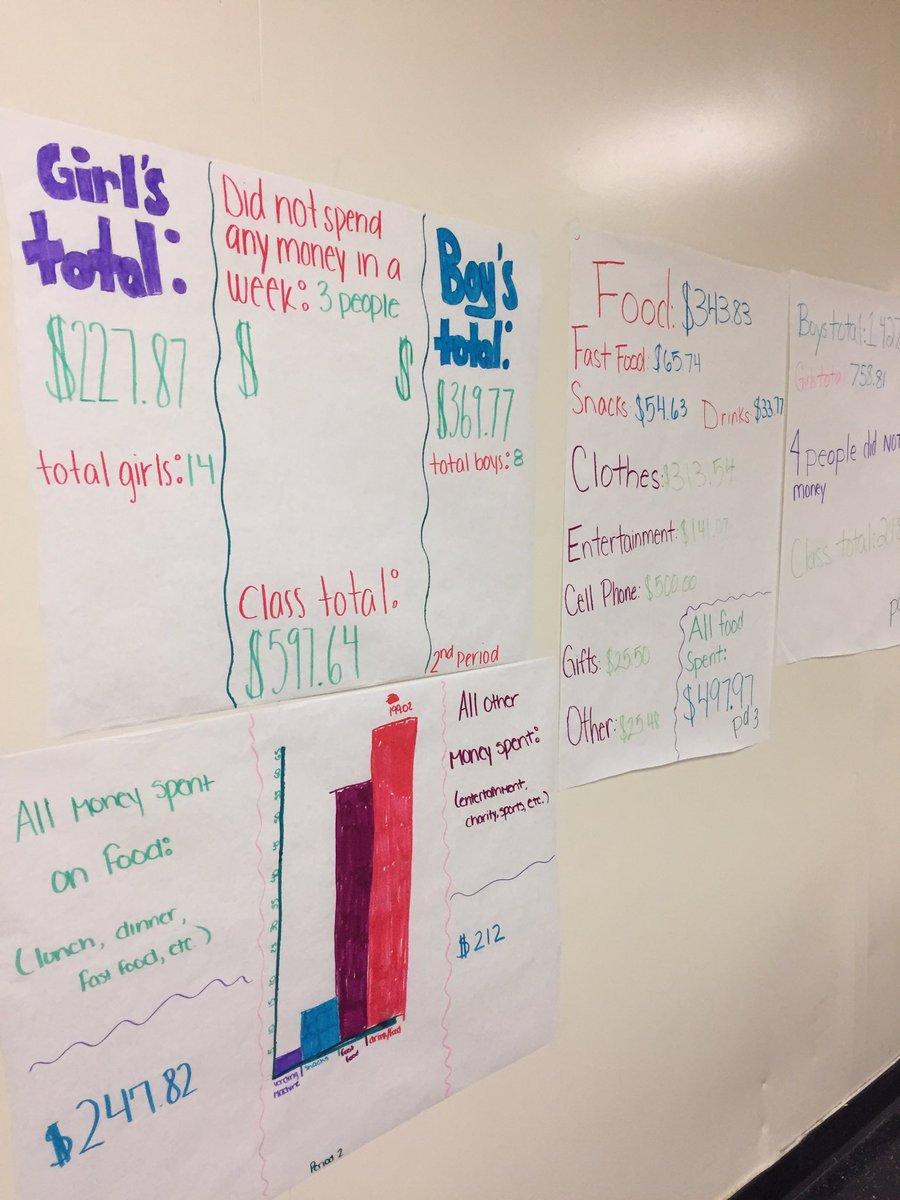 Girl's
total:
$227.87
total girls: 14
Did not spend
any money in a
week: 3 people
$ $
Class total:
$597.64
Boy's
total:
$369.77
total boys: 8
2nd Period
All money spent
on food:
(lunch, dinner,
fast food, etc.)
$247.82
199.02
vending
machine
snacks
fast
food
drinks/food
Period 2
All other
money spent:
(entertainment,
charity, sports, etc.)
$212
Food: $343.83
Fast Food: $65.74
Snacks: $54.63 Drinks $33.77
Clothes: $313.54
Entertainment: $141.07
Cell Phone: $500.00
Gifts: $25.50
Other: $25.48
All food
spent:
$497.97
pd 3
Boys total: 1,427
Girls total: 758.81
4 people did NOT
money
Class total: